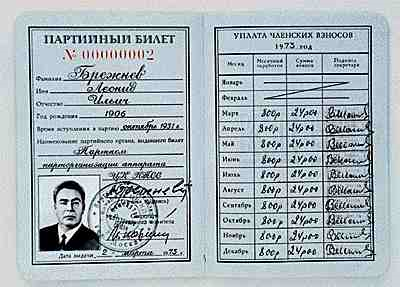 ПАРТИЙНЫЙ БИЛЕТ
№ 00000002
Фамилия Брежнев
Имя Леонид
Отчество Ильич
Год рождения 1906
Время вступления в партию октябрь 1931 г.
Наименование партийного органа, выдавшего билет Партком
парторганизации аппарата
ЦК КПСС
МОСКВА
Дата выдачи 2 марта 1973 г.
УПЛАТА ЧЛЕНСКИХ ВЗНОСОВ
1973 год
Месяц Месячный заработок Сумма взноса Подпись секретаря
Январь
Февраль
Март 800р 24р00
Апрель 800р 24р00
Май 800р 24р00
Июнь 800р 24р00
Июль 800р 24р00
Август 800р 24р00
Сентябрь 800р 24р00
Октябрь 800р 24р00
Ноябрь 800р 24р00
Декабрь 800р 24р00